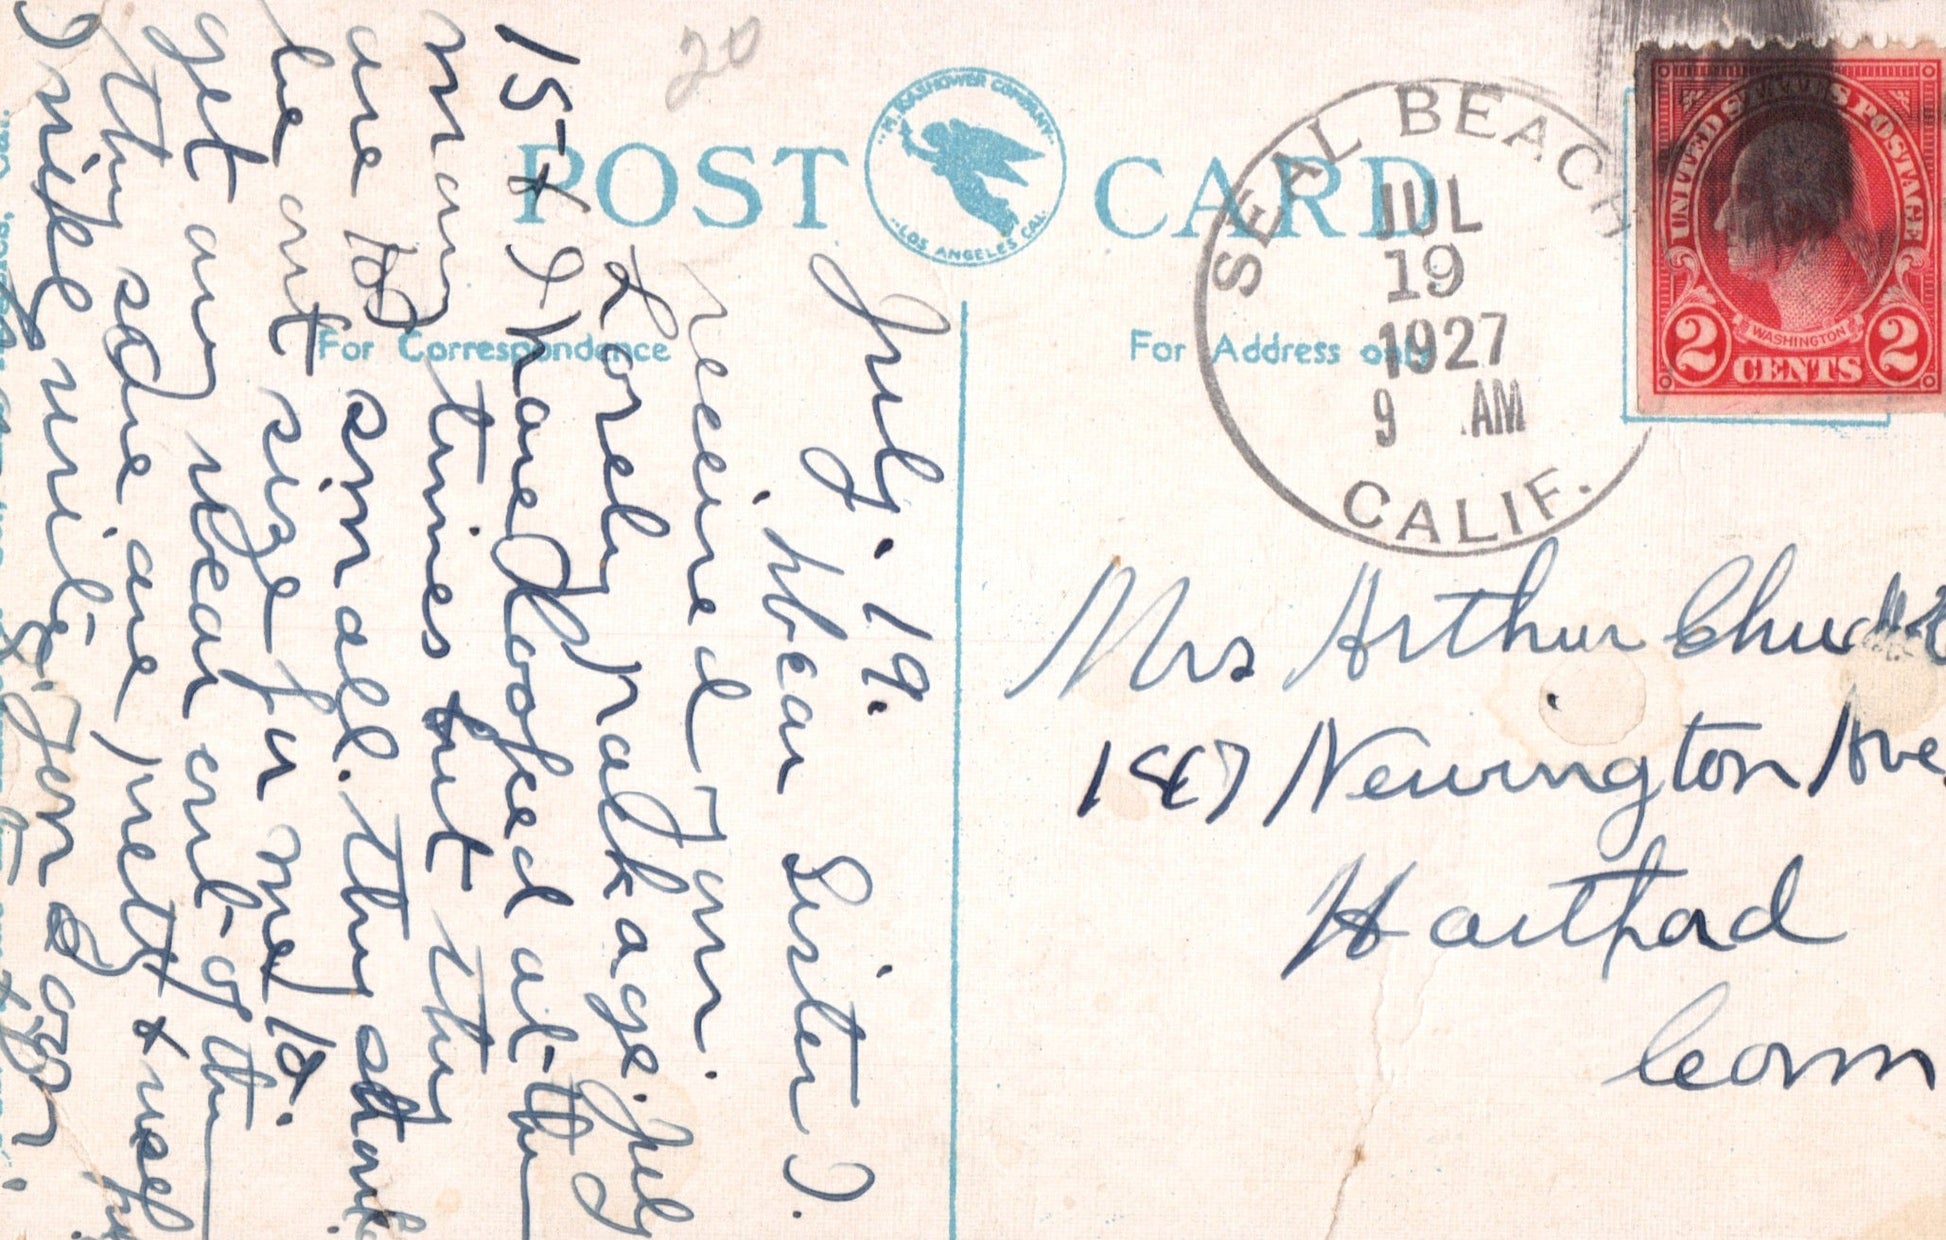 20
POST CARD
M. KASHOWER COMPANY
LOS ANGELES CAL.
For Correspondence
For Address only
SEAL BEACH
JUL
19
1927
9 AM
CALIF.
UNITED STATES POSTAGE
WASHINGTON
2 CENTS 2
July. 19.
Dear Sister I.
received your
Lovely package. July
15 + I have Looked at the
many times but they
are so small. the
he out size for me 18.
get any wear out of the
they sure are pretty +
I will write
Mrs Arthur
Newington Ave.
Hartford
Conn